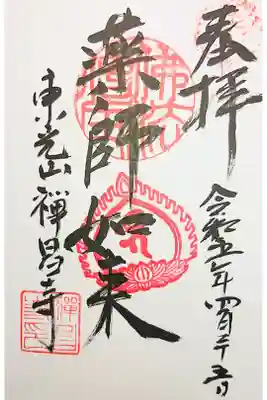 奉拝
令和五年四月二十五日
薬師如来
東光山禅昌寺